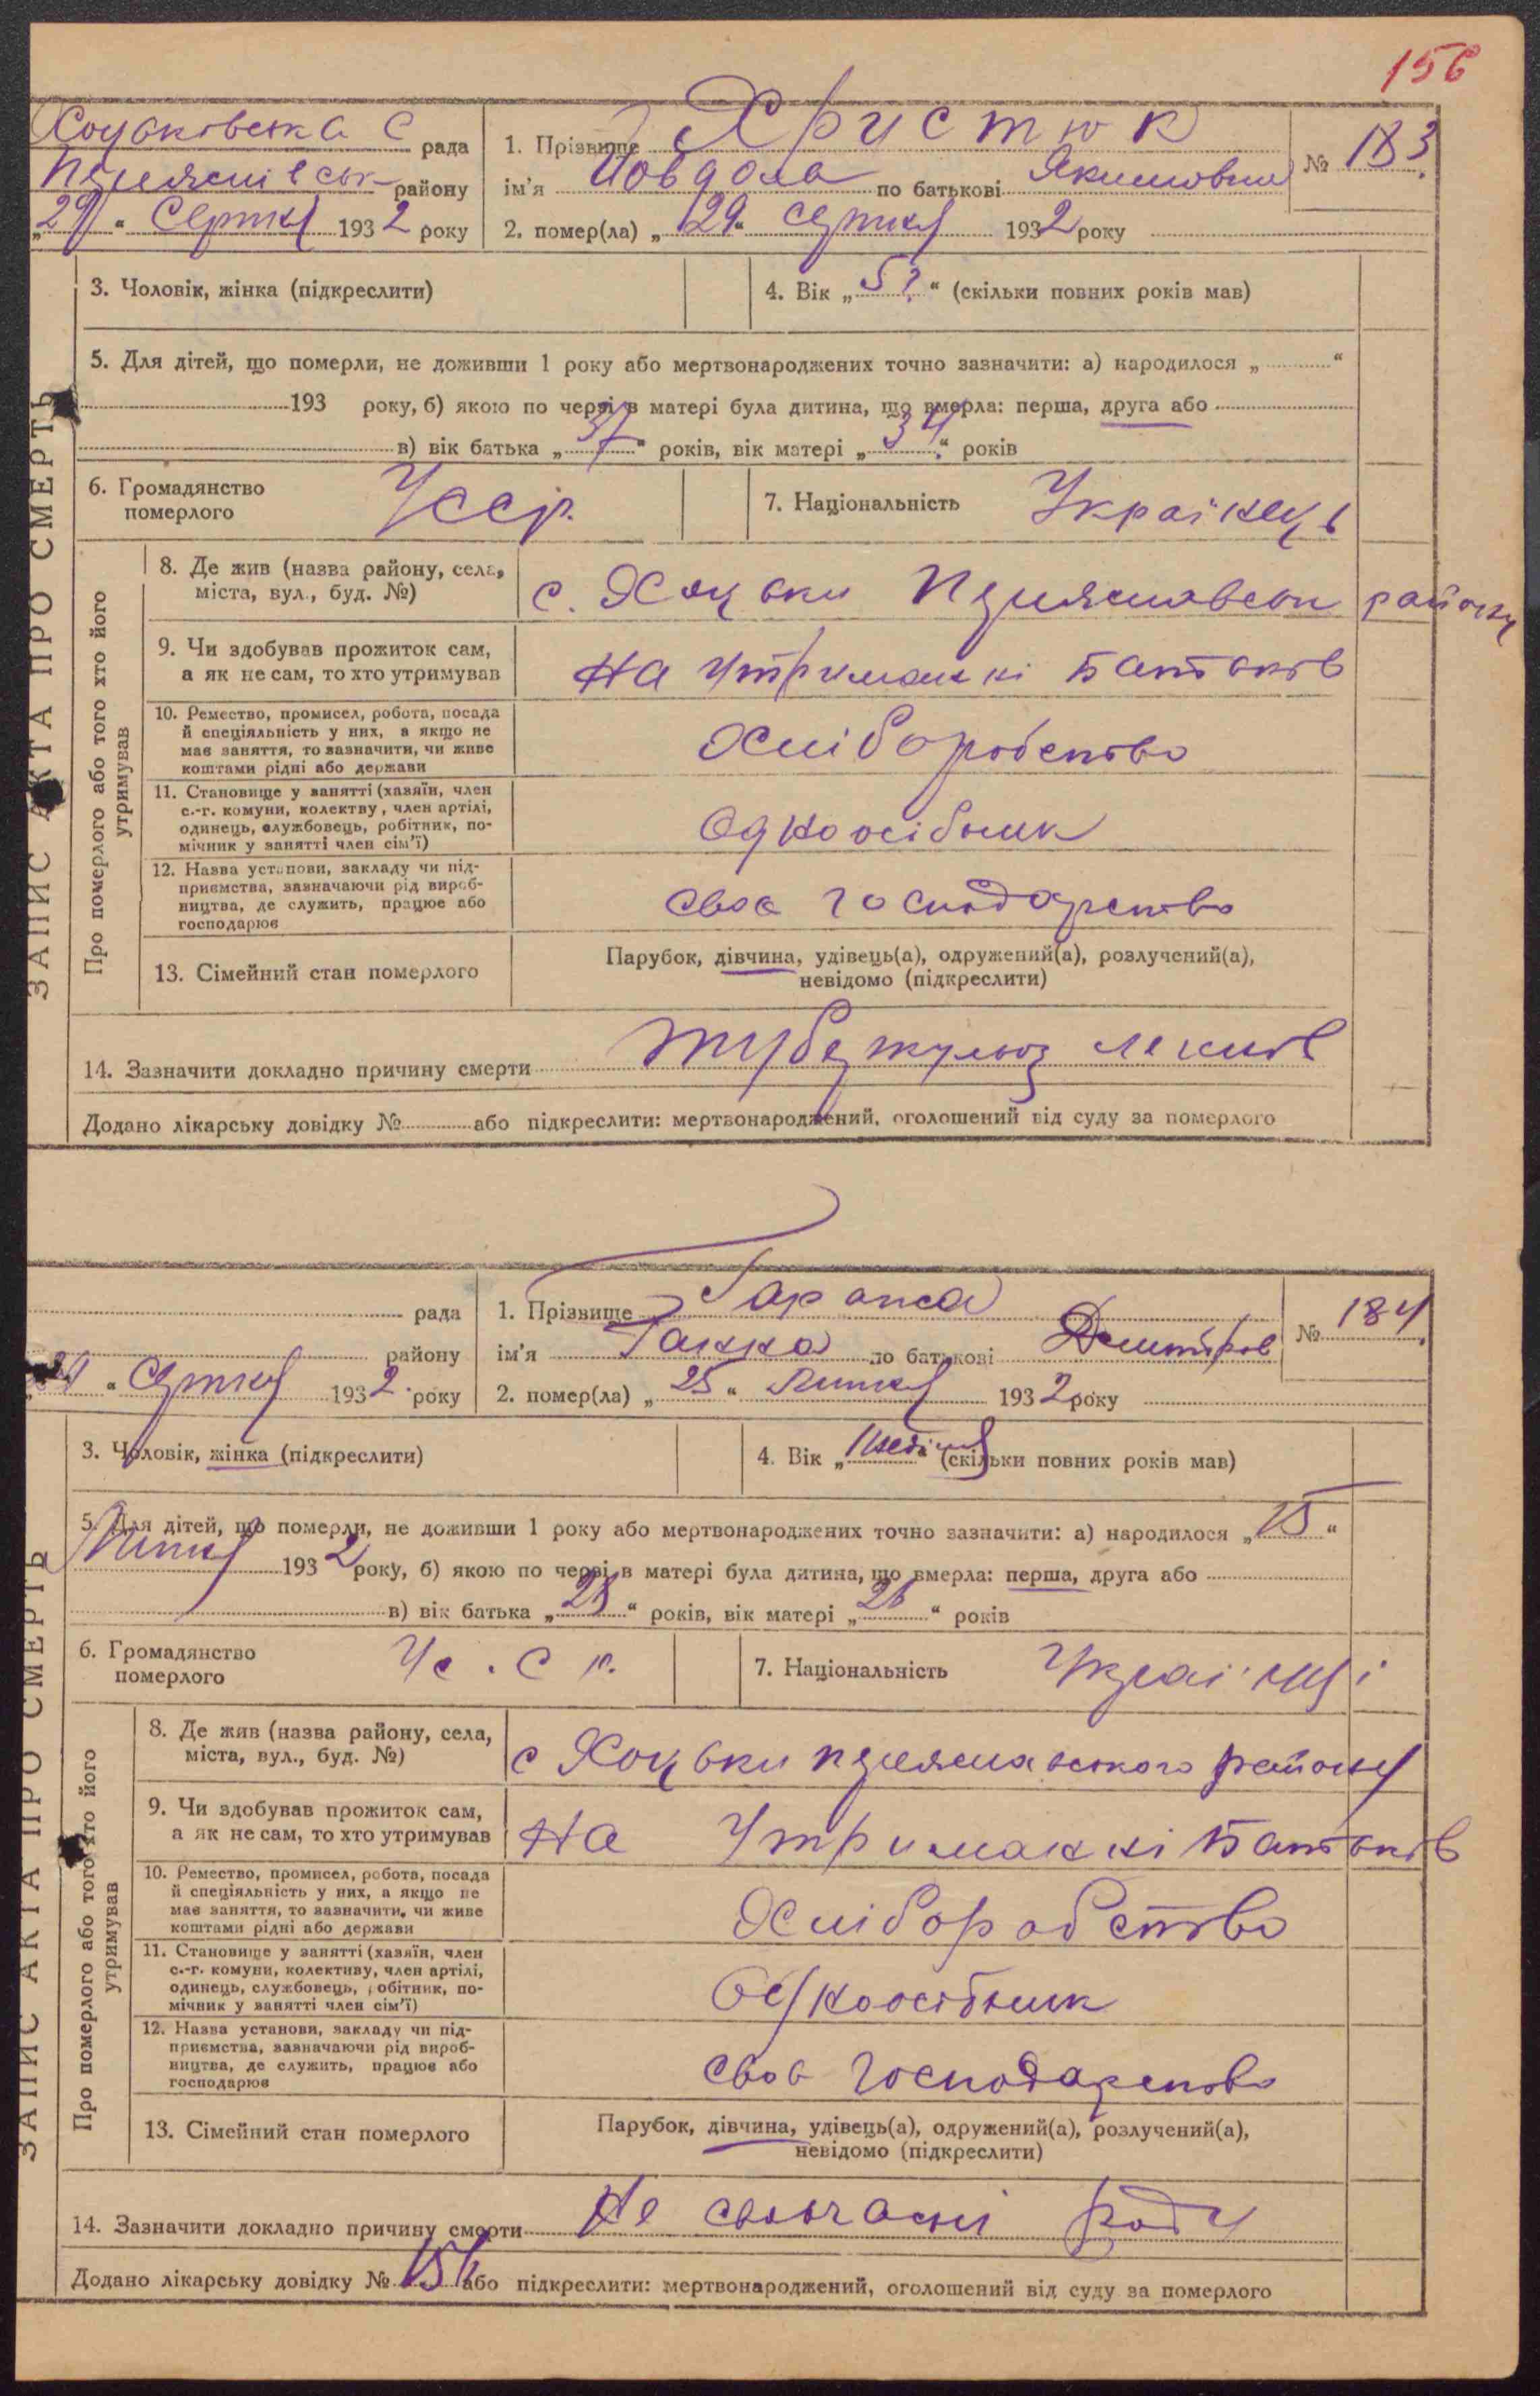 156
ЗАПИС АКТА ПРО СМЕРТЬ
Хоцьківська С рада
району
"29" Серпня 1932 року
1. Прізвище Христюк
ім'я Йовдоха по батькові Якимовна
№ 183.
2. помер(ла) "29" Серпня 1932 року
3. Чоловік, жінка (підкреслити)
4. Вік " " (скільки повних років мав)
5. Для дітей, що померли, не доживши 1 року або мертвонароджених точно зазначити: а) народилося " "
193 року, б) якою по черзі в матері була дитина, що вмерла: перша, друга або
в) вік батька "37" років, вік матері "34" років
6. Громадянство
померлого Усср.
7. Національність Українець
Про померлого або того хто його
утримував
8. Де жив (назва району, села,
міста, вул., буд. №) с. Хоцьки Переяславськ району
9. Чи здобував прожиток сам,
а як не сам, то хто утримував На утриманні Батьків
10. Ремество, промисел, робота, посада
й спеціяльність у них, а якщо не
має заняття, то зазначити, чи живе
коштами рідні або держави Хліборобство
11. Становище у занятті (хазяїн, член
с.-г. комуни, колектву, член артілі,
одинець, службовець, робітник, по-
мічник у занятті член сім'ї) Одноосібник
12. Назва установи, закладу чи під-
приємства, зазначаючи рід вироб-
ництва, де служить, працює або
господарює своє господарство
13. Сімейний стан померлого
Парубок, дівчина, удівець(а), одружений(а), розлучений(а),
невідомо (підкреслити)
14. Зазначити докладно причину смерти туберкульоз легких
Додано лікарську довідку № або підкреслити: мертвонароджений, оголошений від суду за померлого
ЗАПИС АКТА ПРО СМЕРТЬ
рада
району
" Серпня 1932. року
1. Прізвище
ім'я Ганна по батькові Дмитров
№ 184.
2. помер(ла) "25" Липня 1932 року
3. Чоловік, жінка (підкреслити)
4. Вік " " (скільки повних років мав)
5. Для дітей, що померли, не доживши 1 року або мертвонароджених точно зазначити: а) народилося "15"
Липня 1932 року, б) якою по черзі в матері була дитина, що вмерла: перша, друга або
в) вік батька " " років, вік матері "26" років
6. Громадянство
померлого Ус.С р.
7. Національність Українці
Про померлого або того хто його
утримував
8. Де жив (назва району, села,
міста, вул., буд. №) с Хоцьки переяславського району
9. Чи здобував прожиток сам,
а як не сам, то хто утримував На Утриманні Батьків
10. Ремество, промисел, робота, посада
й спеціяльність у них, а якщо не
має заняття, то зазначити, чи живе
коштами рідні або держави Хліборобство
11. Становище у занятті (хазяїн, член
с.-г. комуни, колективу, член артілі,
одинець, службовець, робітник, по-
мічник у занятті член сім'ї) Одноосібник
12. Назва установи, закладу чи під-
приємства, зазначаючи рід вироб-
ництва, де служить, працює або
господарює своє господарство
13. Сімейний стан померлого
Парубок, дівчина, удівець(а), одружений(а), розлучений(а),
невідомо (підкреслити)
14. Зазначити докладно причину смерти Не своєчасні роди
Додано лікарську довідку № або підкреслити: мертвонароджений, оголошений від суду за померлого